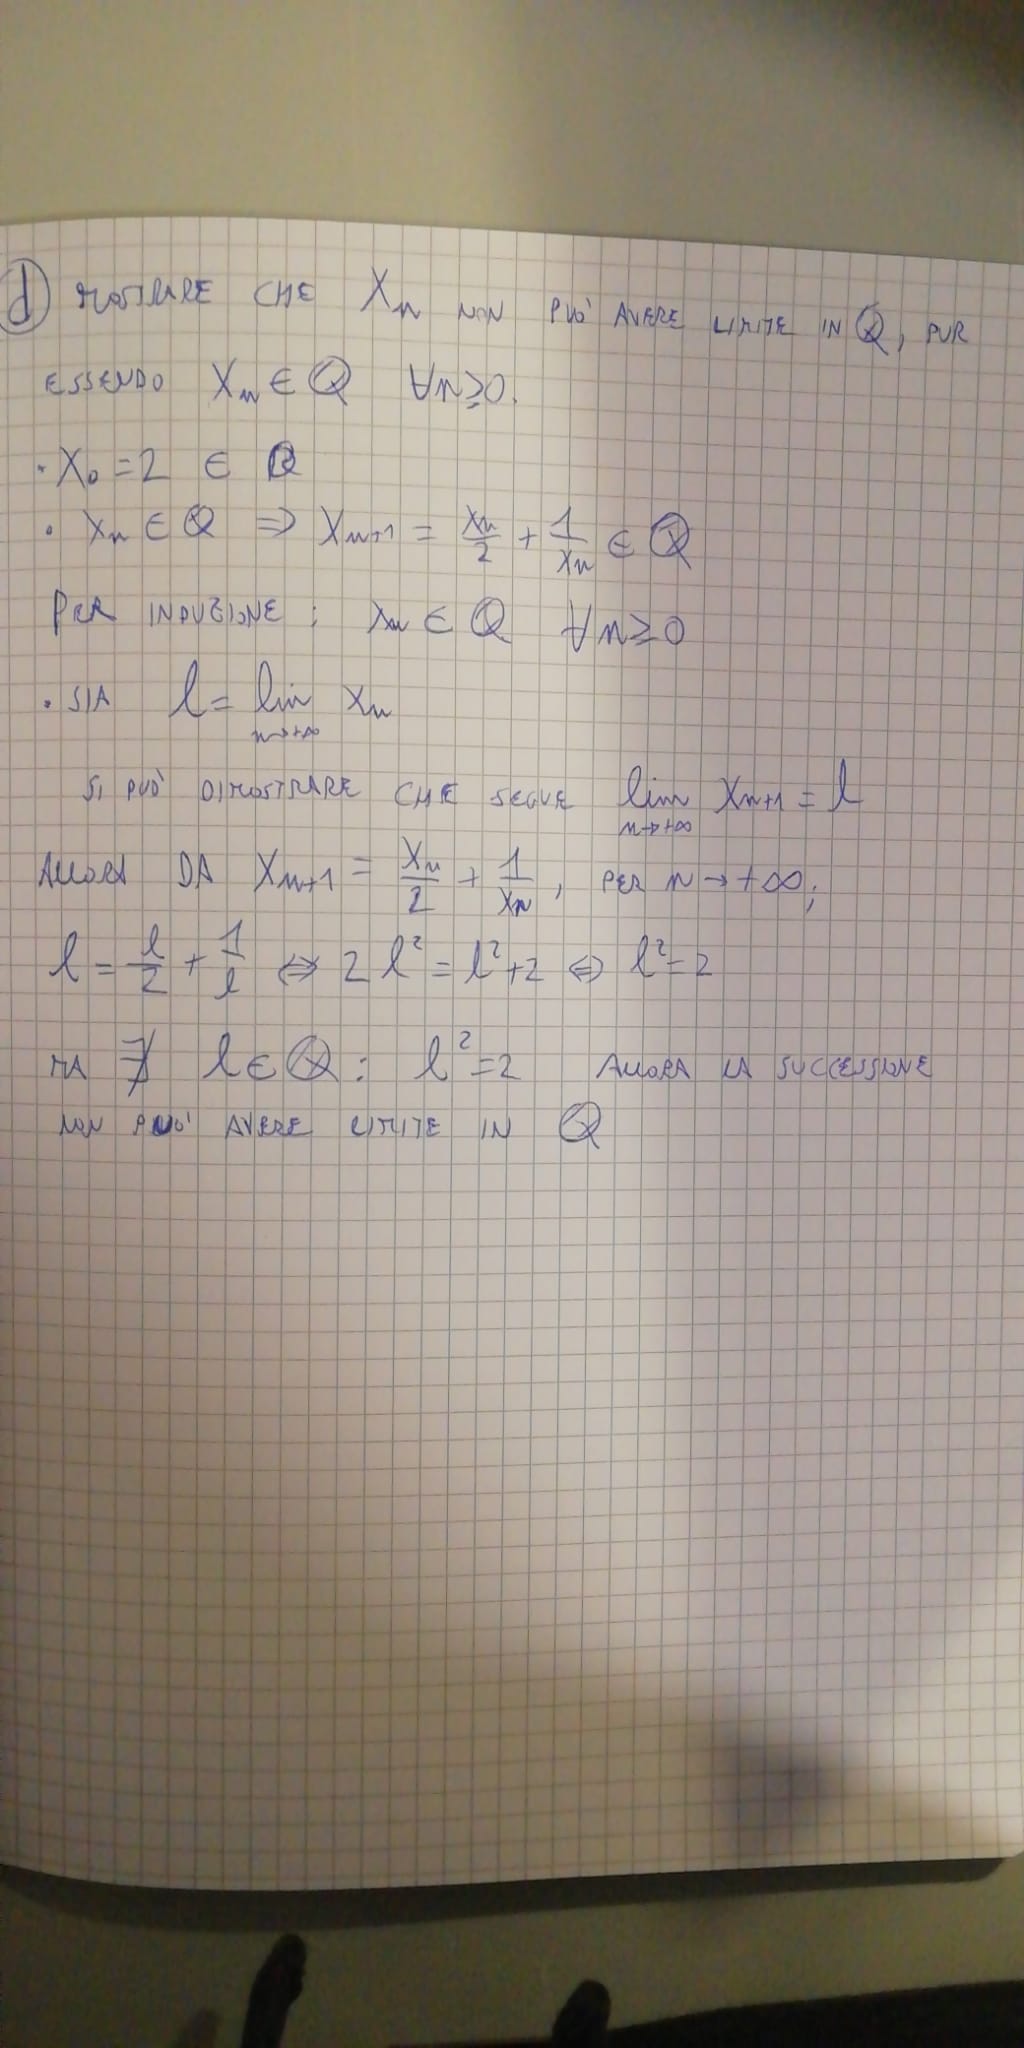 d) MOSTRARE CHE Xn NON PUÒ AVERE LIMITE IN ℚ, PUR
ESSENDO Xn ∈ ℚ ∀n≥0.
· X0 = 2 ∈ ℚ
· xn ∈ ℚ ⇒ Xn+1 = xn/2 + 1/xn ∈ ℚ
PER INDUZIONE: xn ∈ ℚ ∀n≥0
· SIA l = lim n→+∞ xn
SI PUÒ DIMOSTRARE CHE SEGUE lim n→+∞ Xn+1 = l
ALLORA DA Xn+1 = Xn/2 + 1/xn, PER n→+∞;
l = l/2 + 1/l ⇔ 2l² = l²+2 ⇔ l²=2
MA ∄ l∈ℚ: l²=2 ALLORA LA SUCCESSIONE
NON PUÒ AVERE LIMITE IN ℚ